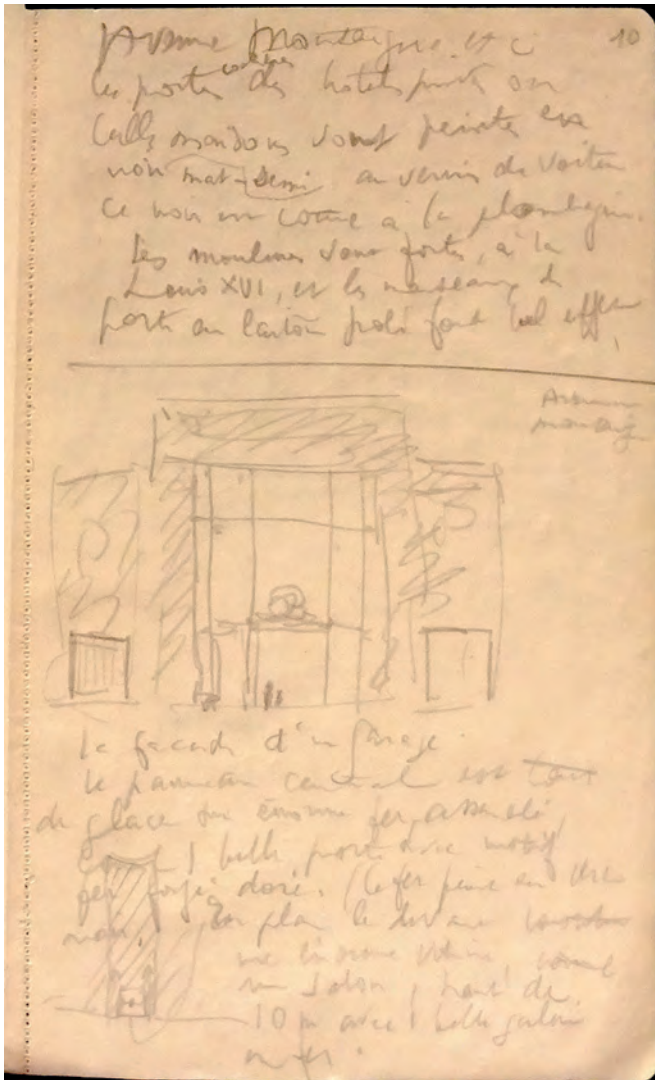 10
Avenue Montaigne etc
les portes cochères des hotels privés ou
belles maisons sont peintes en
noir mat-demi au vernis de voiture
ce noir est comme à la plombagine.
Les moulures sont fortes, à la
Louis XVI, et les
porte en laiton poli font bel effet
Avenue
Montaigne
la façade d'un garage.
Le panneau central est tout
de glace sur énorme fer assemblé,
1 belle porte avec motif
fer forgé doré. (le fer peint en
noir. En plan le
une énorme vitrine comme
un salon, haut de
10 m avec 1 belle
en fer.